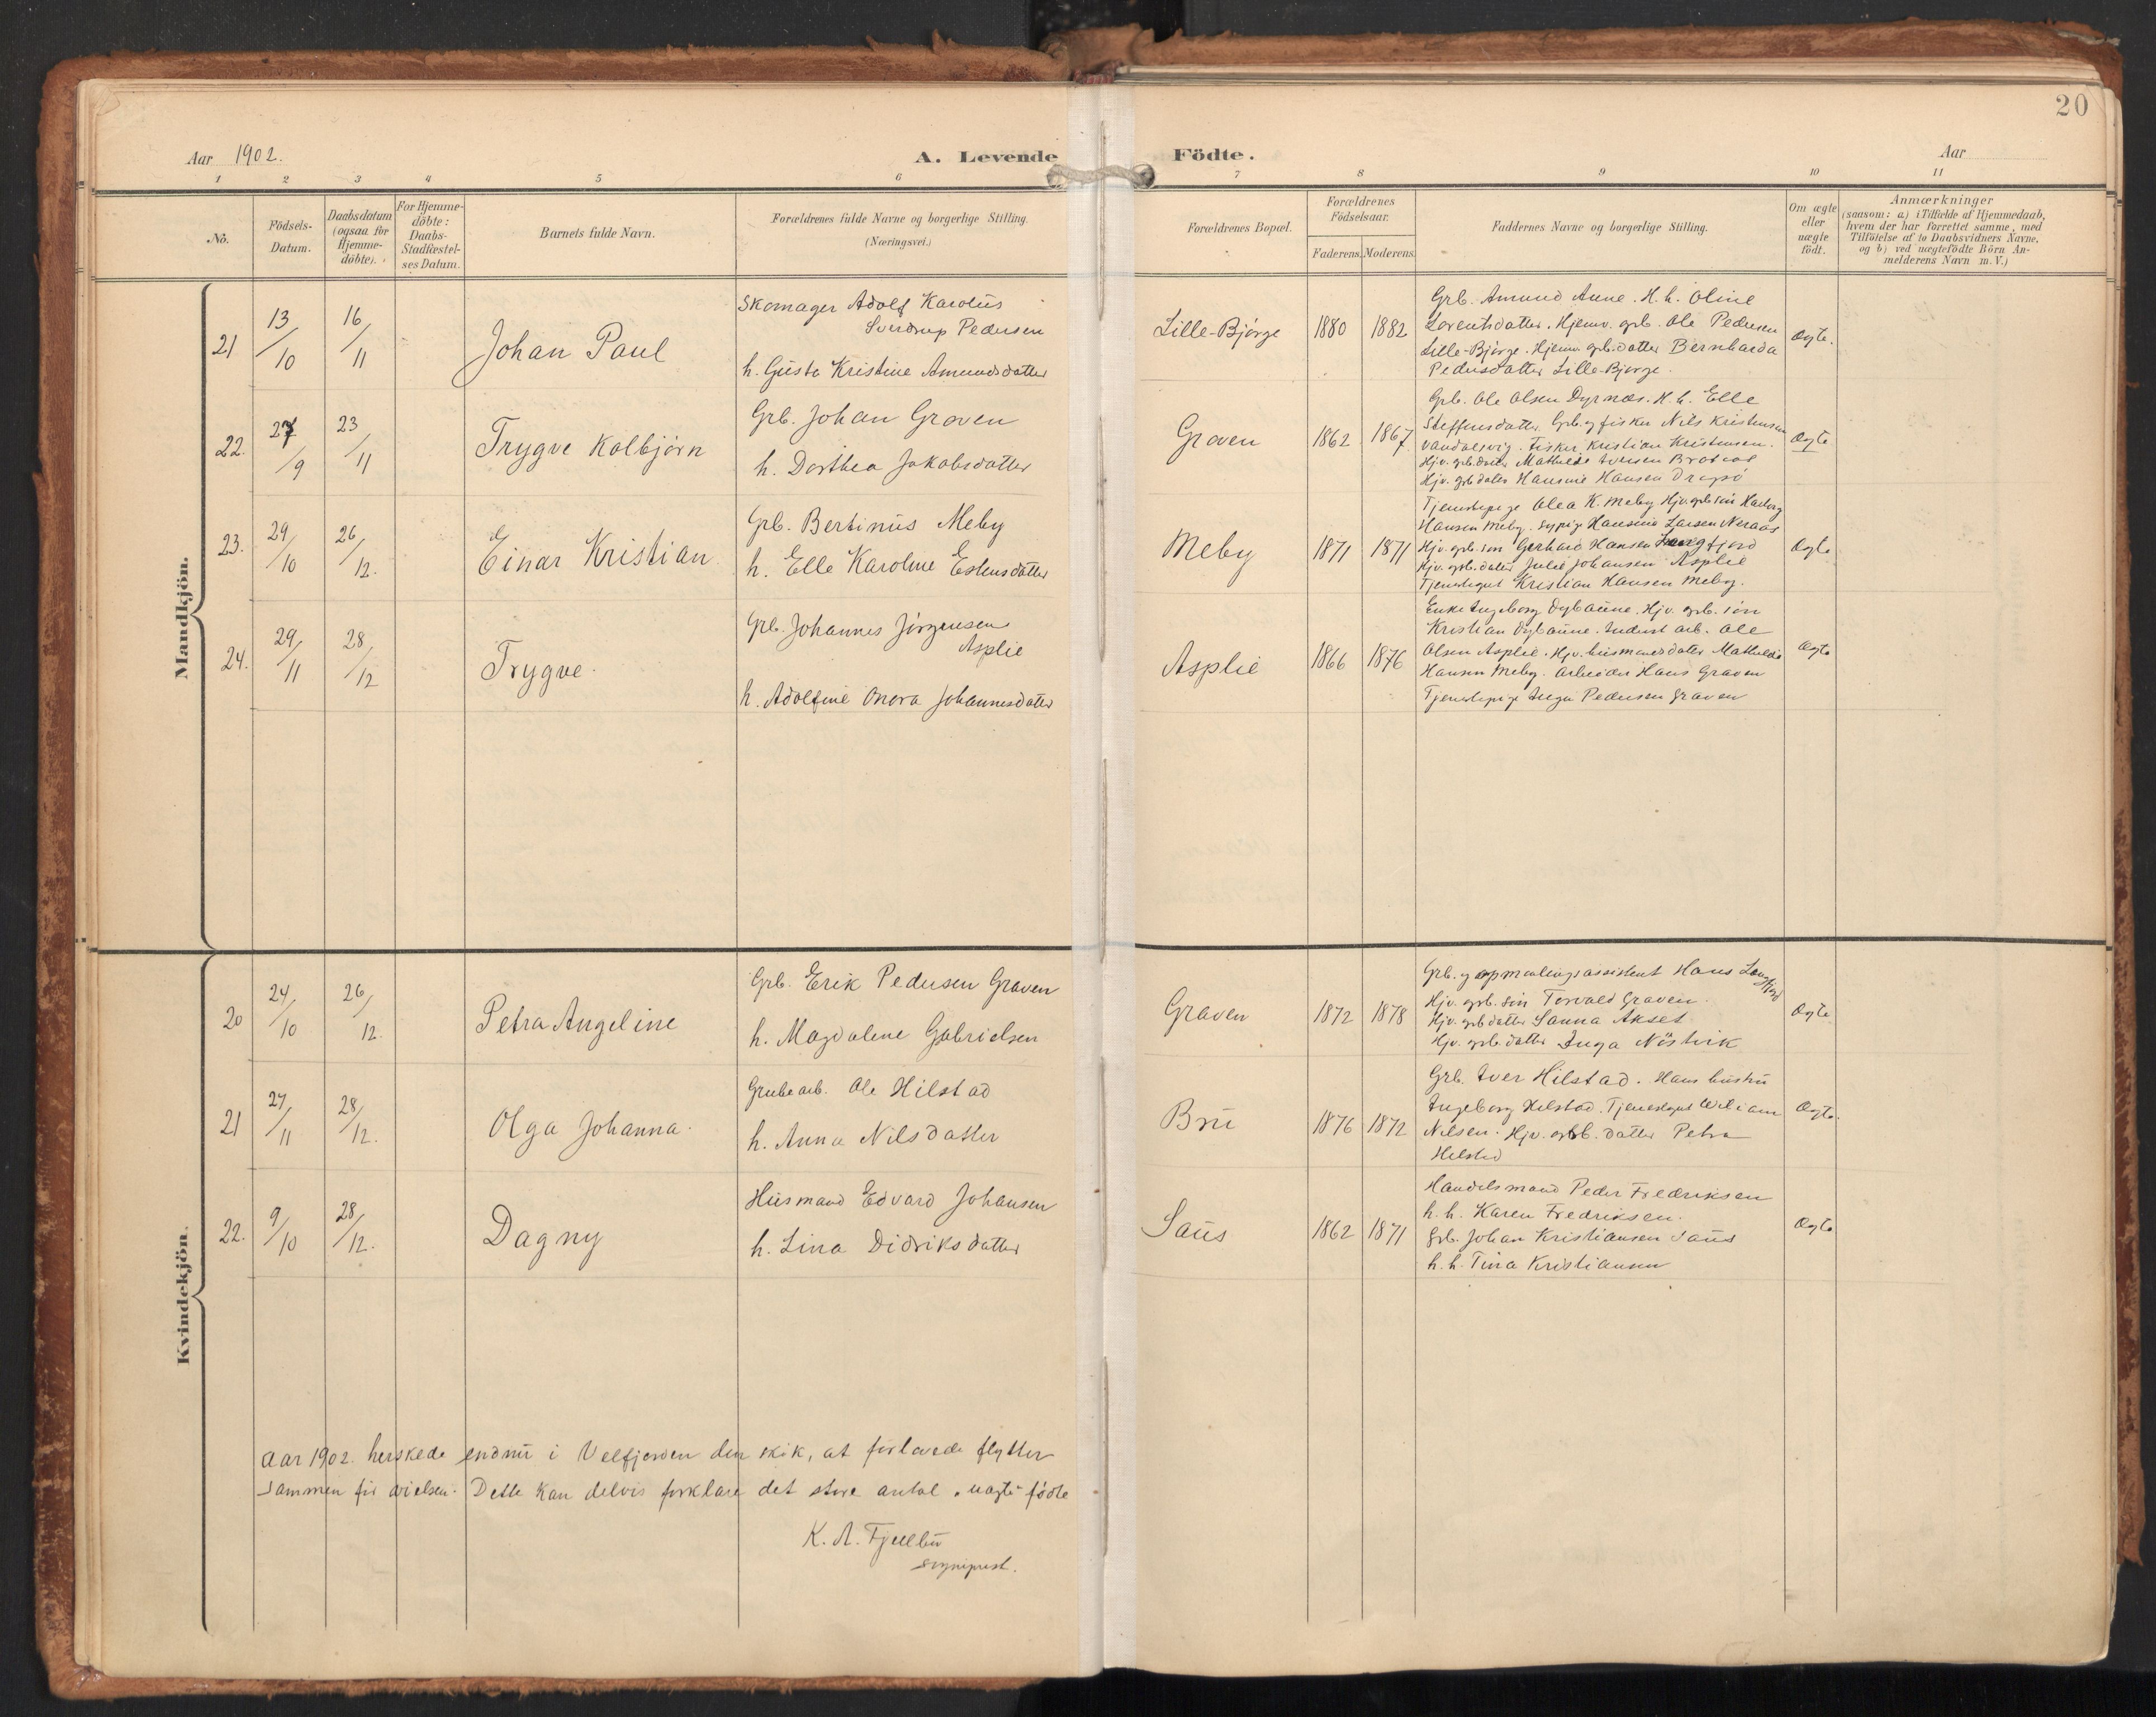 20
Aar 1902.
A. Levende Födte.
Aar
1 2 3 4 5 6 7 8 9 10 11
No.
Födsels-
Datum.
Daabsdatum
(ogsaa for
Hjemme-
döbte).
For Hjemme-
döbte:
Daabs-
Stadfæstel-
ses Datum.
Barnets fulde Navn.
Forældrenes fulde Navne og borgerlige Stilling.
(Næringsvei.)
Forældrenes Bopæl.
Forældrenes
Födselsaar.
Faderens. Moderens.
Faddernes Navne og borgerlige Stilling.
Om ægte
eller
uægte
födt.
Anmærkninger
(saasom: a) i Tilfælde af Hjemmedaab,
hvem der har forrettet samme, med
Tilföielse af to Daabsvidners Navne,
og b) ved uægtefödte Börn An-
melderens Navn m. V.)
Mandkjön.
21
13/10
16/11
Johan Paul
Skomager Adolf Karolus
Sverdrup Pedersen
h. Gusta Kristine Amundsdatter
Lille-Bjørge
1880
1882
Grb. Amund Aune. H. h. Oline
Lorentsdatter. Hjemv. grb. Ole Pedersen
Lille-Bjørge. Hjemv. grb. datter Bernharda
Pedersdatter Lille-Bjørge.
Ægte.
22.
27/9
23/11
Trygve Kolbjörn
Grb. Johan Graven
h. Dorthea Jakobsdatter
Graven
1862
1867
Grb. Ole Olsen Dyrnæs. H. h. Elle
Steffensdatter. Grb. og fisker Nils Kristensen
Vandalsvig. Fisker Kristian Kristensen.
Hjv. grb. datter Mathilde Iversen
Hjv. grb datter Hansine Hansen
Ægte
23.
29/10
26/12.
Einar Kristian
Grb. Bertinus Meby
h. Elle Karoline Estensdatter
Meby
1871
1871
Tjenestepige Olea K. Meby Hjv grb sön
Hansen Meby. Sypige Hansine Larsen Neraas
Hjv. grb. sön Gerhard Hansen Langfjord
Hjv. grb. datter Julie Johansen Asplie
Tjenestegut Kristian Hansen Meby.
Ægte
24.
29/11
28/12
Trygve.
Grb. Johannes Jörgensen
Asplie
h. Adolfine Onora Johannesdatter
Asplie
1866
1876
Enke Ingeborg Dybaune. Hjv. grb. sön
Kristian Dybaune. Indust arb. Ole
Olsen Asplie. Hjv. husmandsdatter Mathilde
Hansen Meby. Arbeider Hans Graven
Tjenestepige Inga Pedersen Graven
Ægte
Kvindekjön.
20
24/10
26/12.
Petra Angeline
Grb. Erik Pedersen Graven
h. Magdalene Gabrielsen
Graven
1872
1878
Grb. og opmaalingsassistent Hans Langfjord
Hjv. grb. sön Torvald Graven.
Hjv. grb datter Sanna Akset
Hjv. grb. datter Inga Nöstvik
Ægte
21
27/11
28/12.
Olga Johanna.
Grubearb. Ole Hilstad
h. Anna Nilsdatter
Bru
1876
1872
Grb. Iver Hilstad. Hans hustru
Ingeborg Hilstad. Tjenestegut Wiliam
Nilsen. Hjv. grb. datter Petra
Hilstad
Ægte.
22.
9/10
28/12.
Dagny
Husmand Edvard Johansen
h. Lina Didriksdatter
Saus
1862
1871
Handelsmand Peder Fredriksen
h. h. Karen Fredriksen.
Grb. Johan Kristiansen Saus
h. h. Tina Kristiansen
Ægte
Aar 1902. herskede endnu i Velfjorden den skik, at forlovede flytter
sammen för vielsen. Dette kan delvis forklare det store antal „uægte" födte
K. A. Fjellbu
sogneprest.